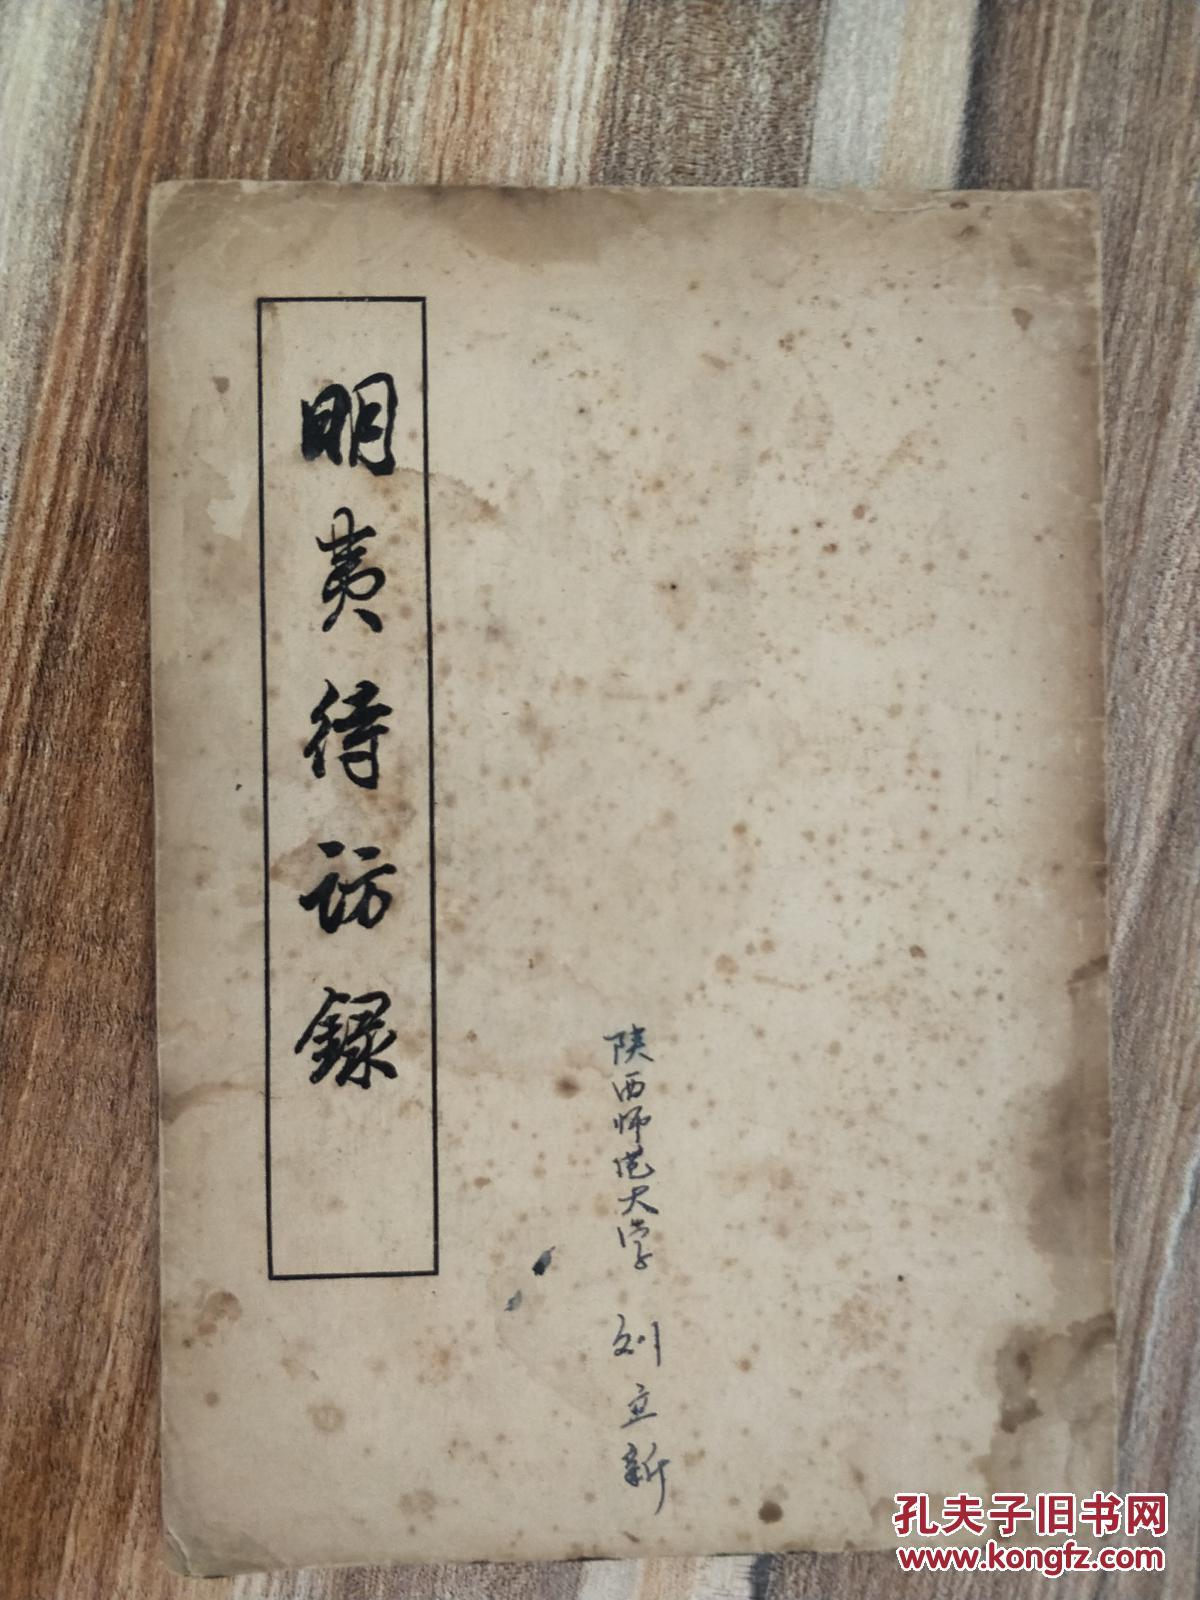 明夷待访錄
陕西师范大学 刘立新
孔夫子旧书网
www.kongfz.com